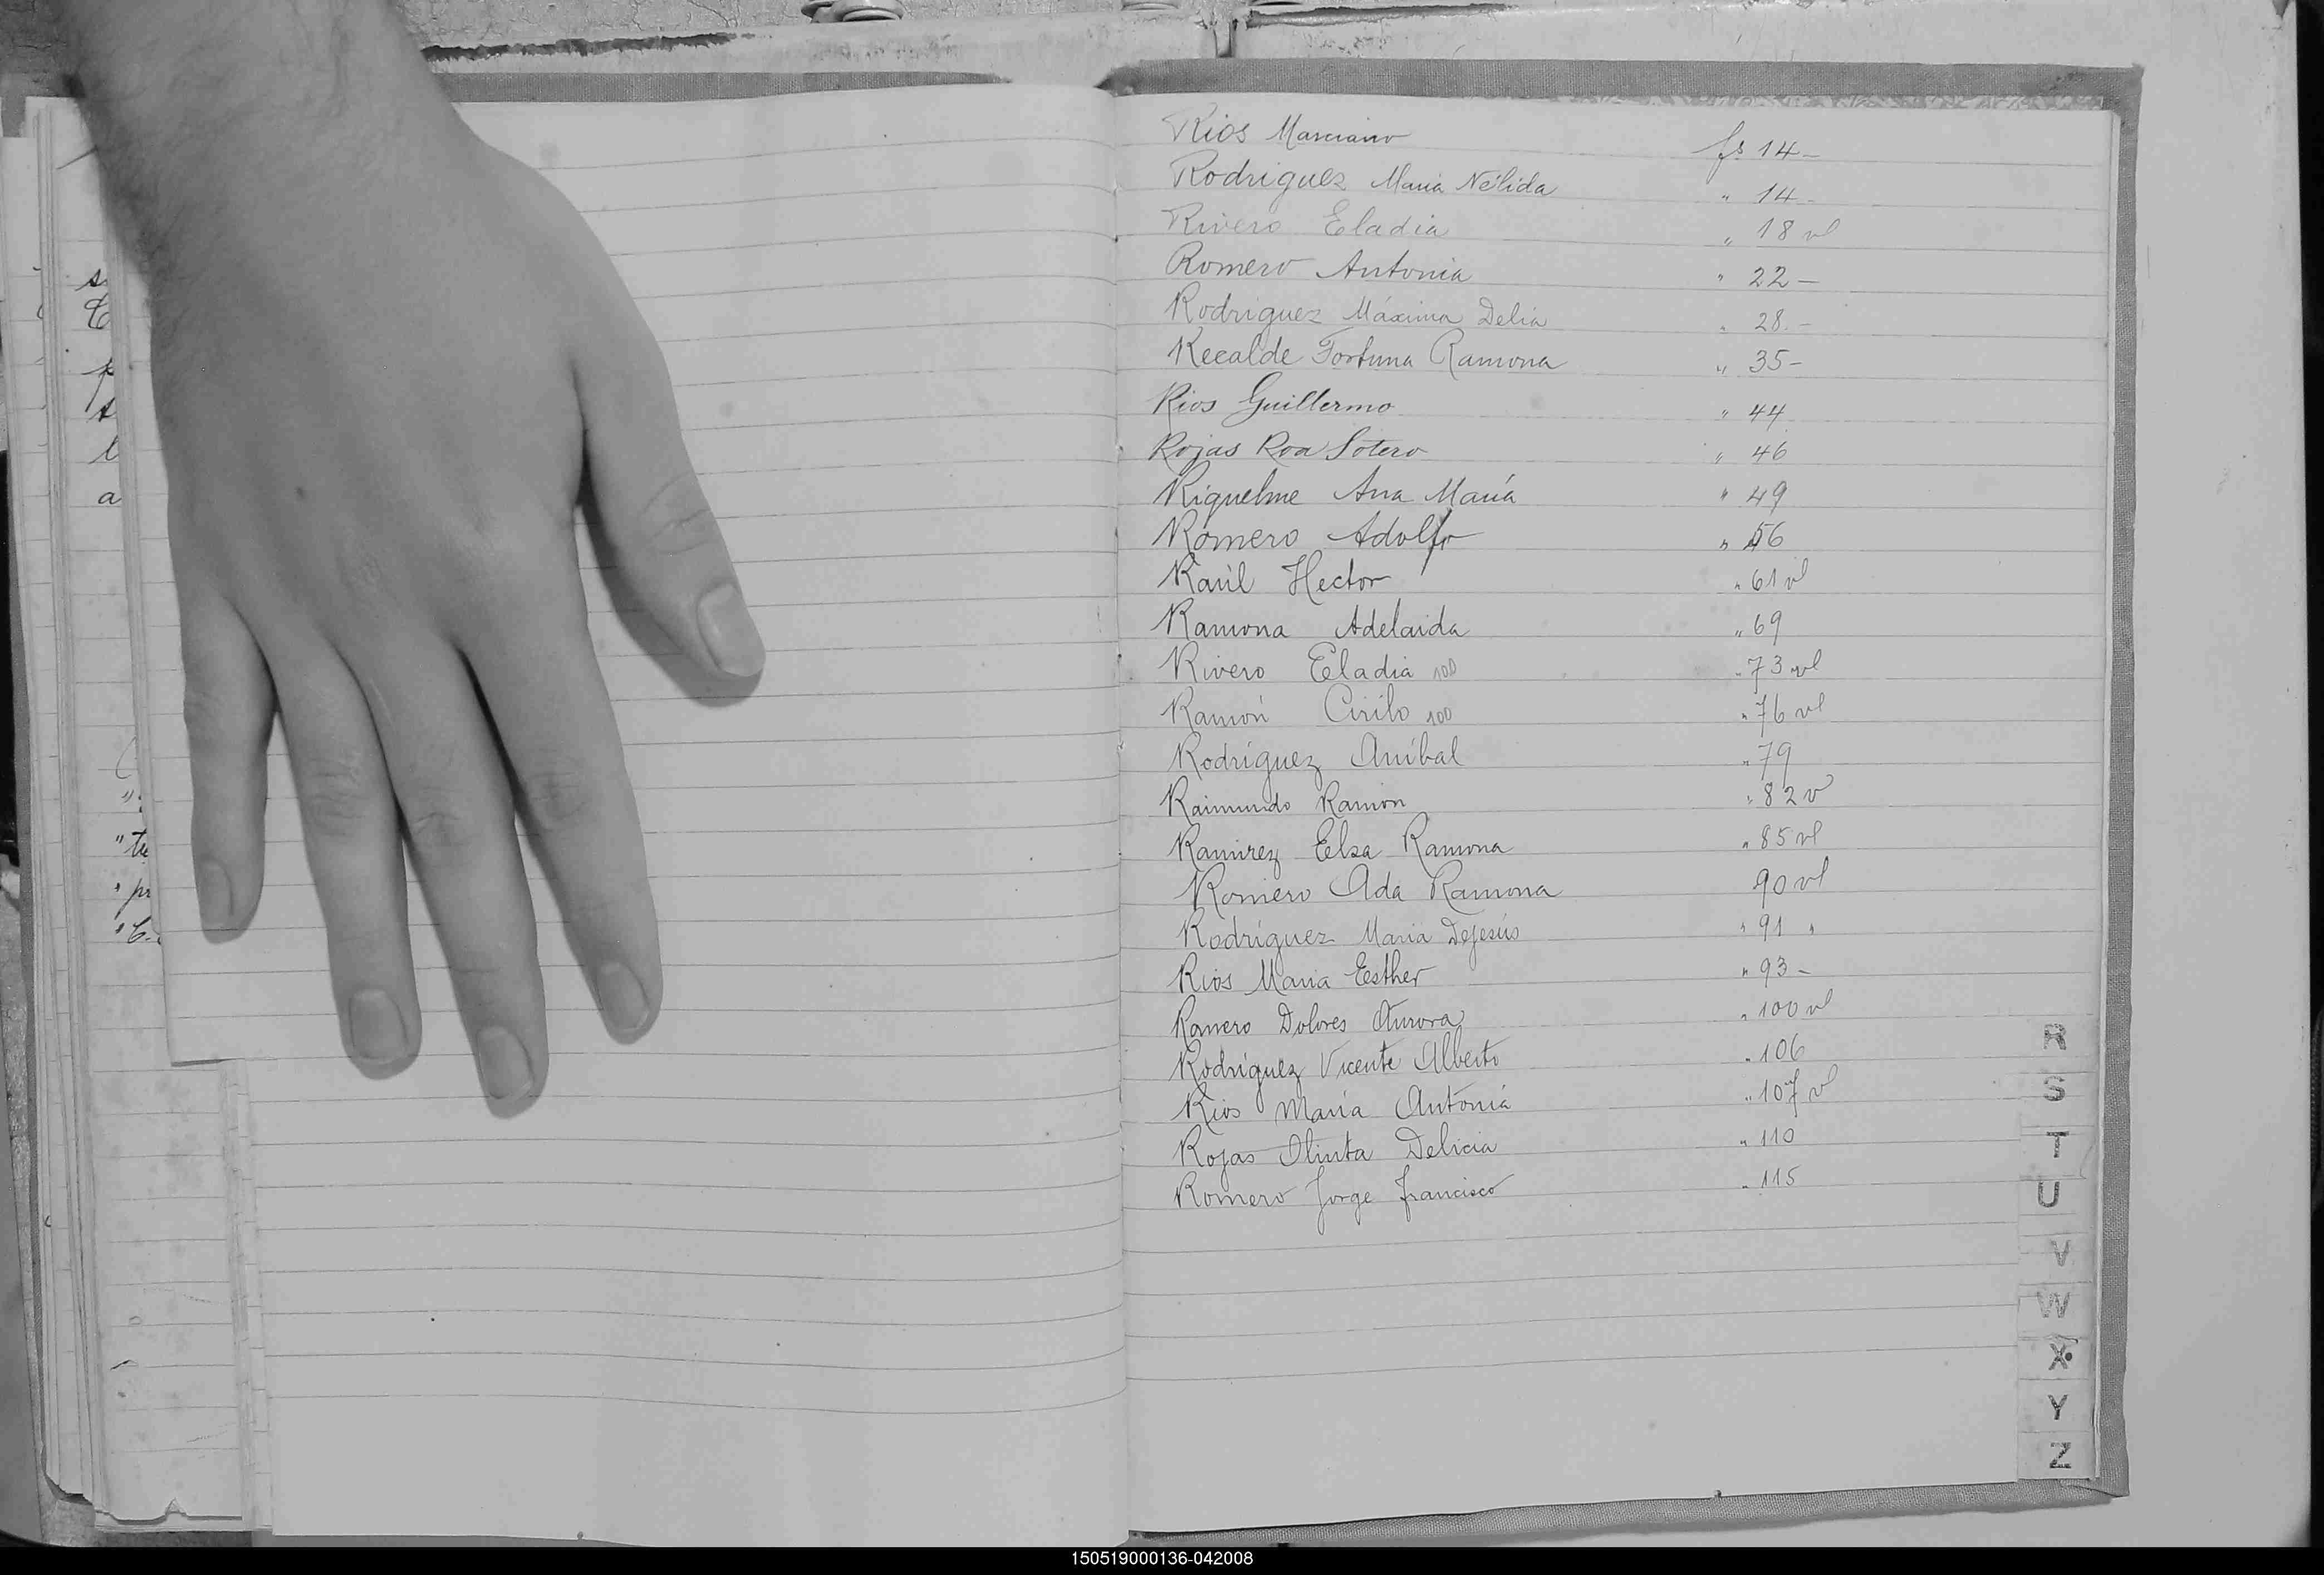 Rios Marciano fs 14-
Rodriguez Maria Nélida " 14-
Rivero Eladia " 18 vl
Romero Antonia " 22-
Rodriguez Máxima Delia " 28.-
Recalde Fortuna Ramona " 35-
Rios Guillermo " 44
Rojas Roa Sotero " 46
Riquelme Ana María " 49
Romero Adolfo " 56
Raúl Hector " 61 vl
Ramona Adelaida " 69
Rivero Eladia 100 " 73 vl
Ramón Cirilo 100 " 76 vl
Rodríguez Aníbal " 79
Raimundo Ramón " 82 v
Ramirez Elsa Ramona " 85 vl
Romero Ada Ramona 90 vl
Rodríguez Maria Dejesús " 91 "
Rios Maria Esther " 93-
Romero Dolores Aurora " 100 vl
Rodríguez Vicente Alberto " 106
Rios María Antonia " 107 vl
Rojas Olinta Delicia " 110
Romero Jorge Francisco " 115
R
S
T
U
V
W
X
Y
Z
150519000136-042008